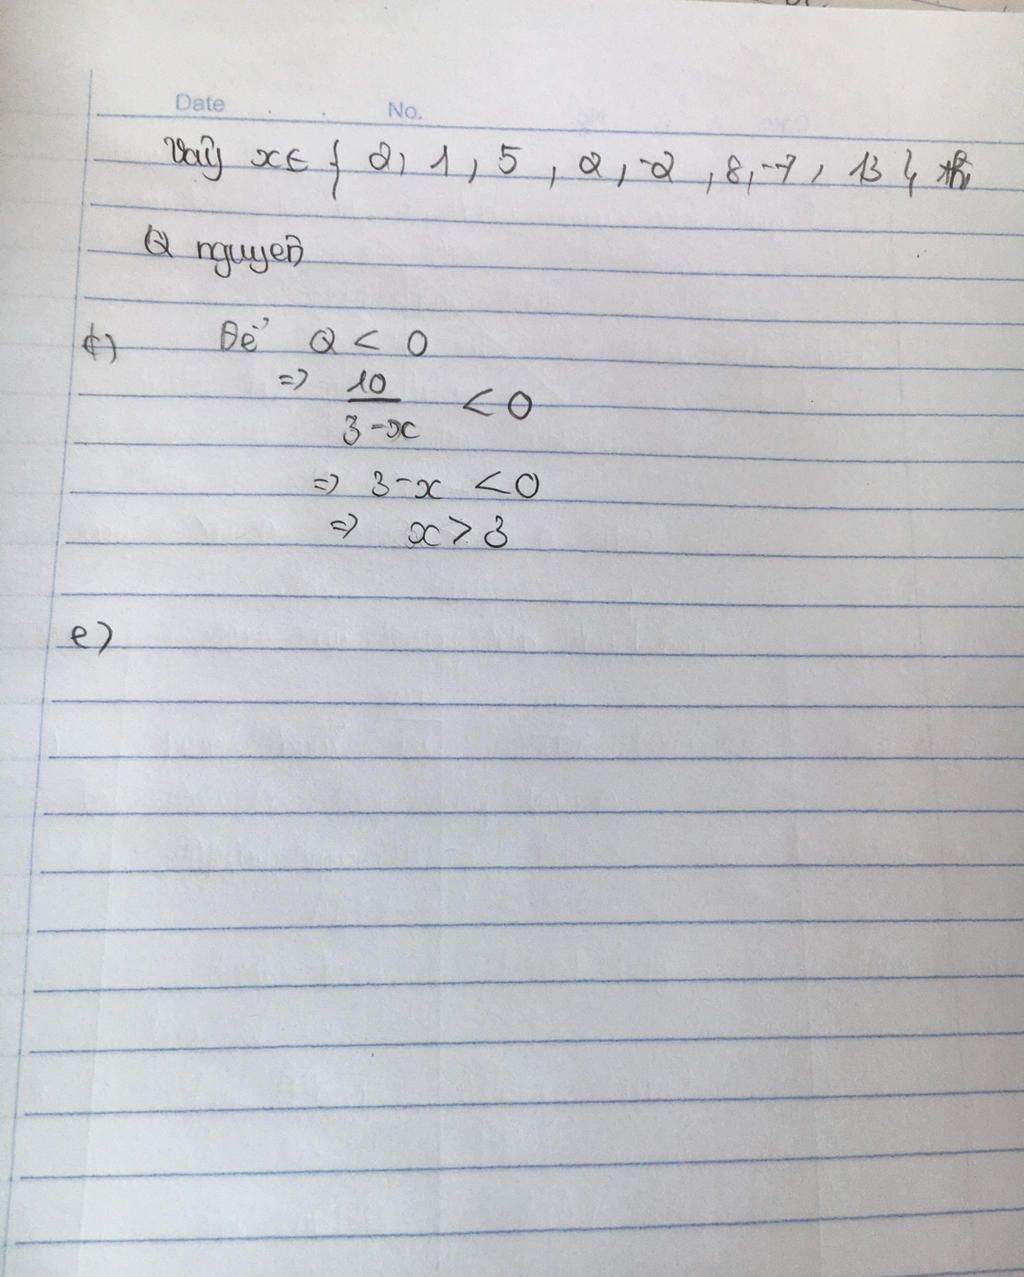 Date No.
Vậy x ∈ { 2, 1, 5, 2, -2, 8, -7, 13 } thì
Q nguyên
c) Để Q < 0
=> 10/(3-x) < 0
=> 3-x < 0
=> x > 3
e)